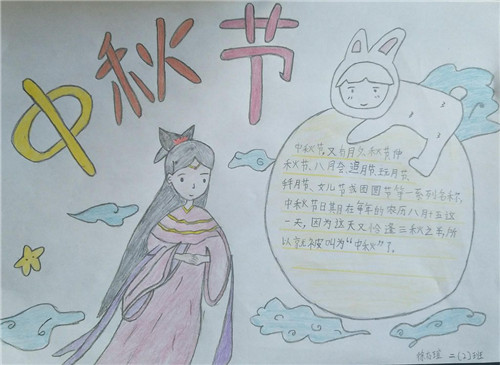 中秋节
中秋节,又名月夕、秋节、仲
秋节、八月会、追月节、玩月节、
拜月节、女儿节或团圆节等一系列名称,
中秋节日期在每年的农历八月十五这
一天,因为这天又恰逢三秋之半,所
以就被叫为“中秋”了。
二(2)班